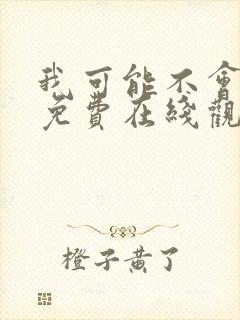 我可能不會
免費在綫觀
橙子黄了